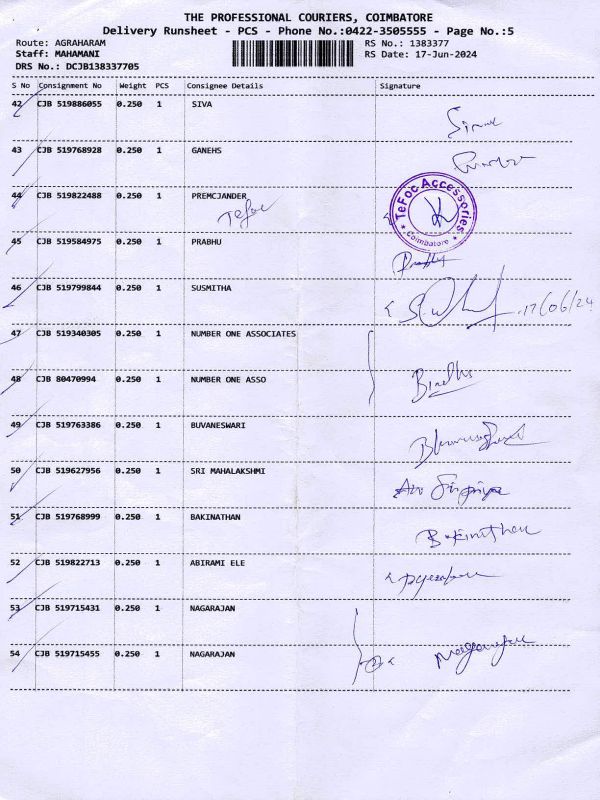 THE PROFESSIONAL COURIERS, COIMBATORE
Delivery Runsheet - PCS - Phone No.:0422-3505555 - Page No.:5
Route: AGRAHARAM RS No.: 1383377
Staff: MAHAMANI RS Date: 17-Jun-2024
DRS No.: DCJB138337705
S No Consignment No Weight PCS Consignee Details Signature
42 CJB 519886055 0.250 1 SIVA
43 CJB 519768928 0.250 1 GANEHS
44 CJB 519822488 0.250 1 PREMCJANDER
Tefoc
TeFoc Accessories
Coimbatore
45 CJB 519584975 0.250 1 PRABHU
Prabhu
46 CJB 519799844 0.250 1 SUSMITHA
17/06/24
47 CJB 519340305 0.250 1 NUMBER ONE ASSOCIATES
48 CJB 80470994 0.250 1 NUMBER ONE ASSO
49 CJB 519763386 0.250 1 BUVANESWARI
50 CJB 519627956 0.250 1 SRI MAHALAKSHMI
51 CJB 519768999 0.250 1 BAKINATHAN
Bakinathan
52 CJB 519822713 0.250 1 ABIRAMI ELE
53 CJB 519715431 0.250 1 NAGARAJAN
54 CJB 519715455 0.250 1 NAGARAJAN
② Nagarajan